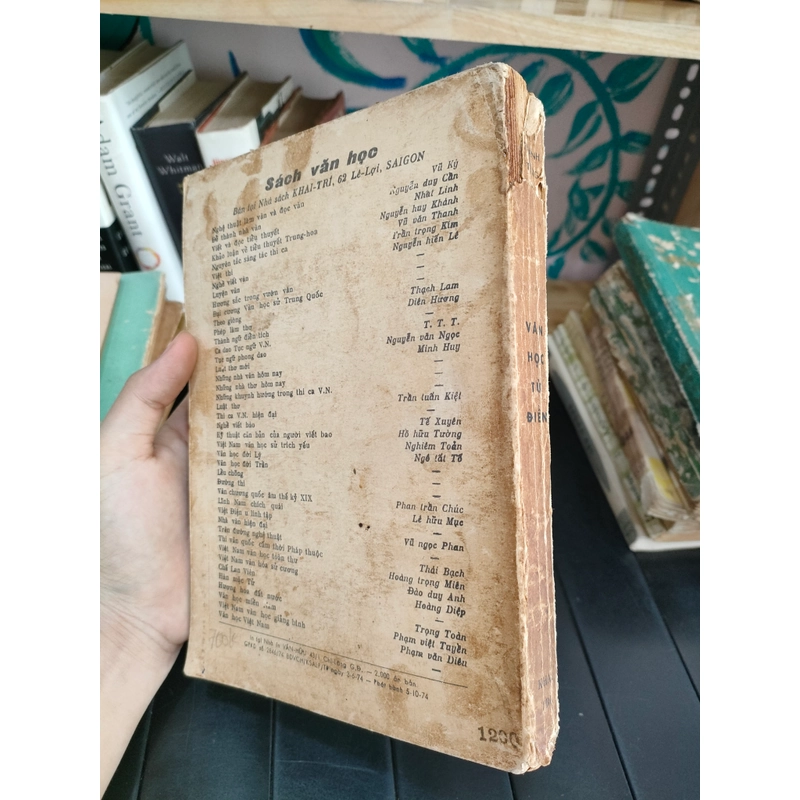 Adam Grant
Walt
Whitman
Sách văn học
Bán tại Nhà sách KHAI-TRÍ, 62 Lê-Lợi, SAIGON
Nghệ thuật làm văn và đọc văn Vũ Ký
Để thành nhà văn Nguyễn duy Cần
Viết và đọc tiểu thuyết Nhất Linh
Khảo luận về tiểu thuyết Trung-hoa Nguyễn huy Khánh
Nguyên tắc sáng tác thi ca Vũ văn Thanh
Việt thi Trần trọng Kim
Nghề viết văn Nguyễn hiến Lê
Luyện văn —
Hương sắc trong vườn văn —
Đại cương Văn học sử Trung Quốc —
Theo giòng Thạch Lam
Phép làm thơ Diên Hương
Thành ngữ điển tích —
Ca dao Tục ngữ V.N. T. T. T.
Tục ngữ phong dao Nguyễn văn Ngọc
Luật thơ mới Minh Huy
Những nhà văn hôm nay —
Những nhà thơ hôm nay —
Những khuynh hướng trong thi ca V.N. —
Luật thơ Trần tuấn Kiệt
Thi ca V.N. hiện đại —
Nghề viết báo Tế Xuyên
Kỹ thuật căn bản của người viết báo Hồ hữu Tường
Việt Nam văn học sử trích yếu Nghiêm Toản
Văn học đời Lý Ngô tất Tố
Văn học đời Trần —
Lều chõng —
Đường thi —
Văn chương quốc âm thế kỷ XIX Phan trần Chúc
Lĩnh Nam chích quái Lê hữu Mục
Việt Điện u linh tập —
Nhà văn hiện đại Vũ ngọc Phan
Trên đường nghệ thuật —
Thi văn quốc cấm thời Pháp thuộc Thái Bạch
Việt Nam văn học toàn thư Hoàng trọng Miên
Việt Nam văn hóa sử cương Đào duy Anh
Chế Lan Viên Hoàng Diệp
Hàn mặc Tử —
Hương hóa đất nước Trọng Toàn
Văn học miền nam Phạm việt Tuyền
Việt Nam văn học giảng bình Phạm văn Diêu
Văn học Việt Nam —
2.000 ấn bản
5-6-74 — Phát hành 5-10-74
1230
VĂN
HỌC
TỪ
ĐIỂN